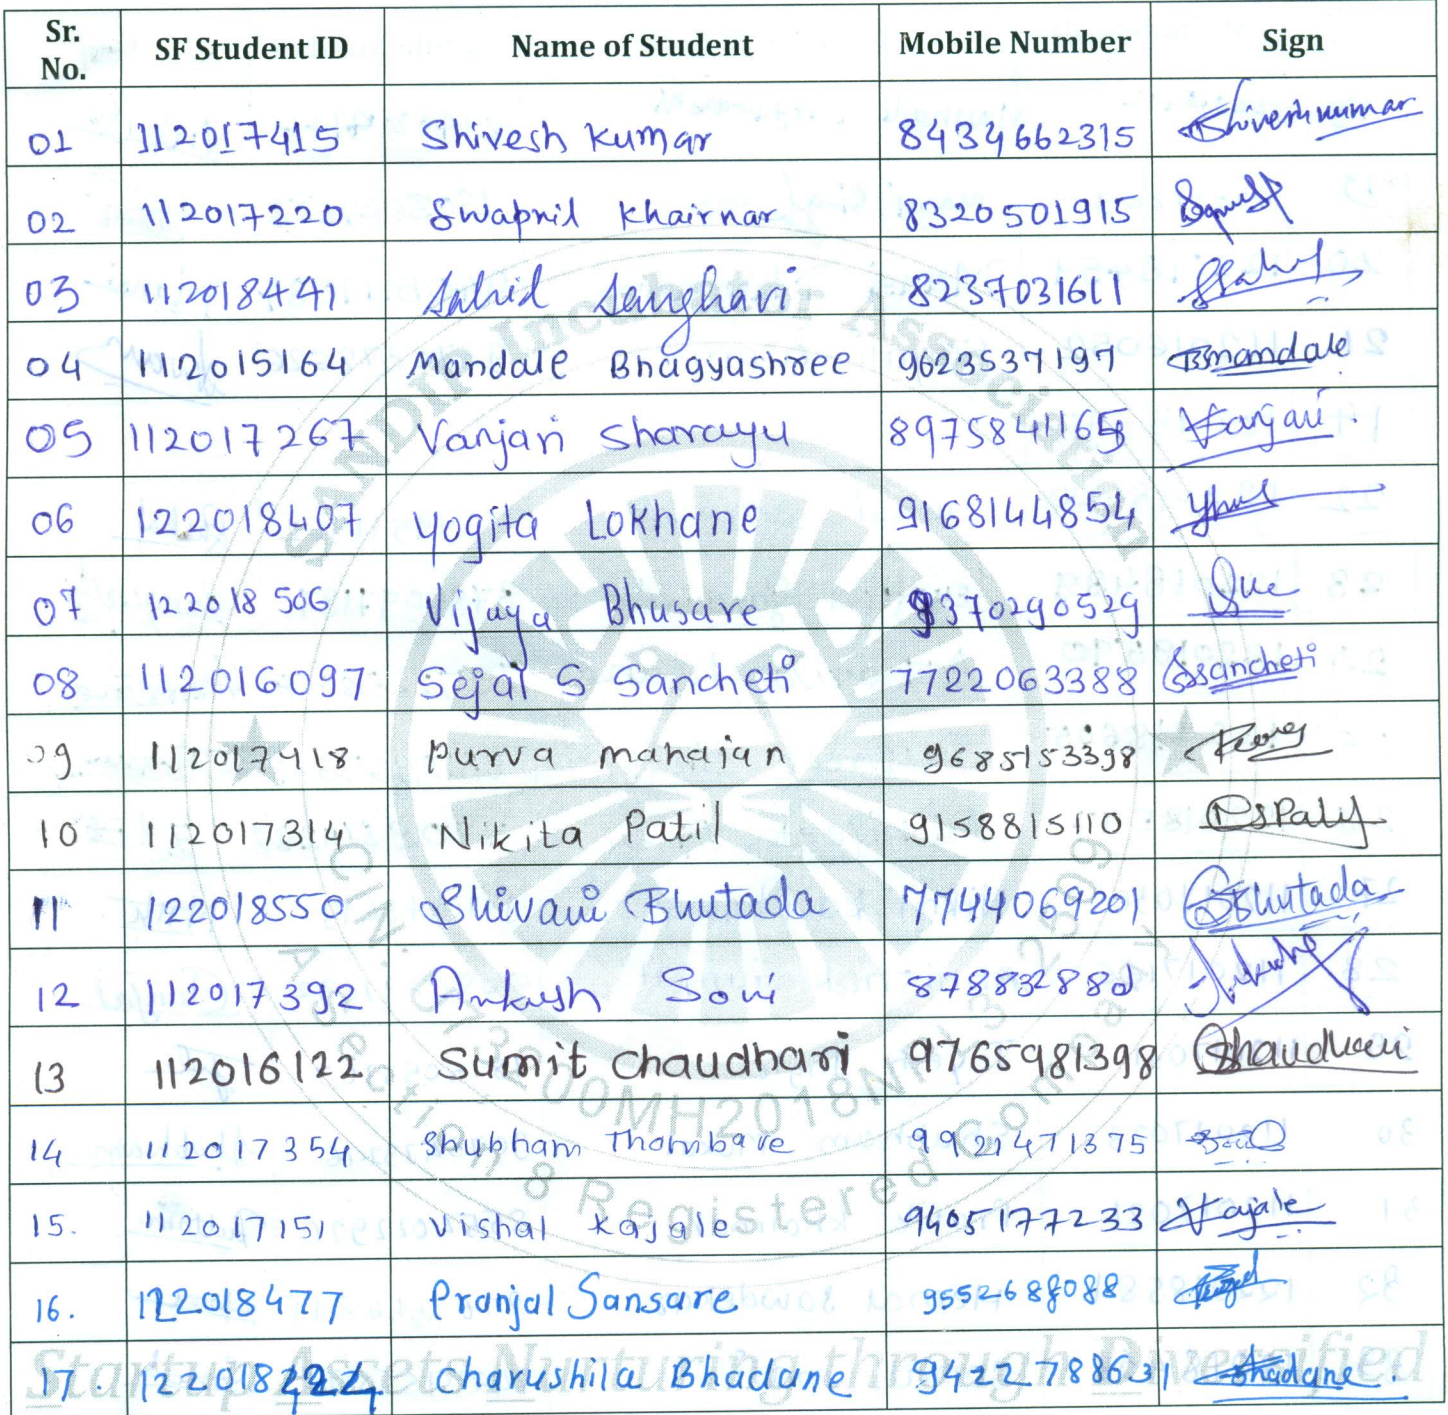 Sr. No. SF Student ID Name of Student Mobile Number Sign
01 112017415 Shivesh Kumar 8434662315 Shiveshkumar
02 112017220 Swapnil Khairnar 8320501915
03 112018441 Sahid Sanghavi 8237031611
04 112015164 Mandale Bhagyashree 9623537197 Bmandale
05 112017267 Vanjari Sharayu Vanjari.
06 122018407 Yogita Lokhane 9168144854
07 122018506 Vijaya Bhusare 9370290529
08 112016097 Sejal S Sancheti 7722063388 Ssancheti
09 112017418 Purva mahajan 9685153398
10 112017314 Nikita Patil 9158815110
11 122018550 Shivani Bhutada 7744069201 SBhutada
12 112017392 Ankush Soni
13 112016122 Sumit Chaudhari 9765981398 Chaudhari
14 112017354 Shubham Thombare 9921471375
15. 112017151 Vishal Kajale 9405177233 Vkajale
16. 122018477 Pranjal Sansare 9552688088
17. 122018424 Charushila Bhadane 9422788631 Bhadane.
SANDIP Incubator Association
Section 8 Registered Company
Startup Assets Nurturing through Diversified